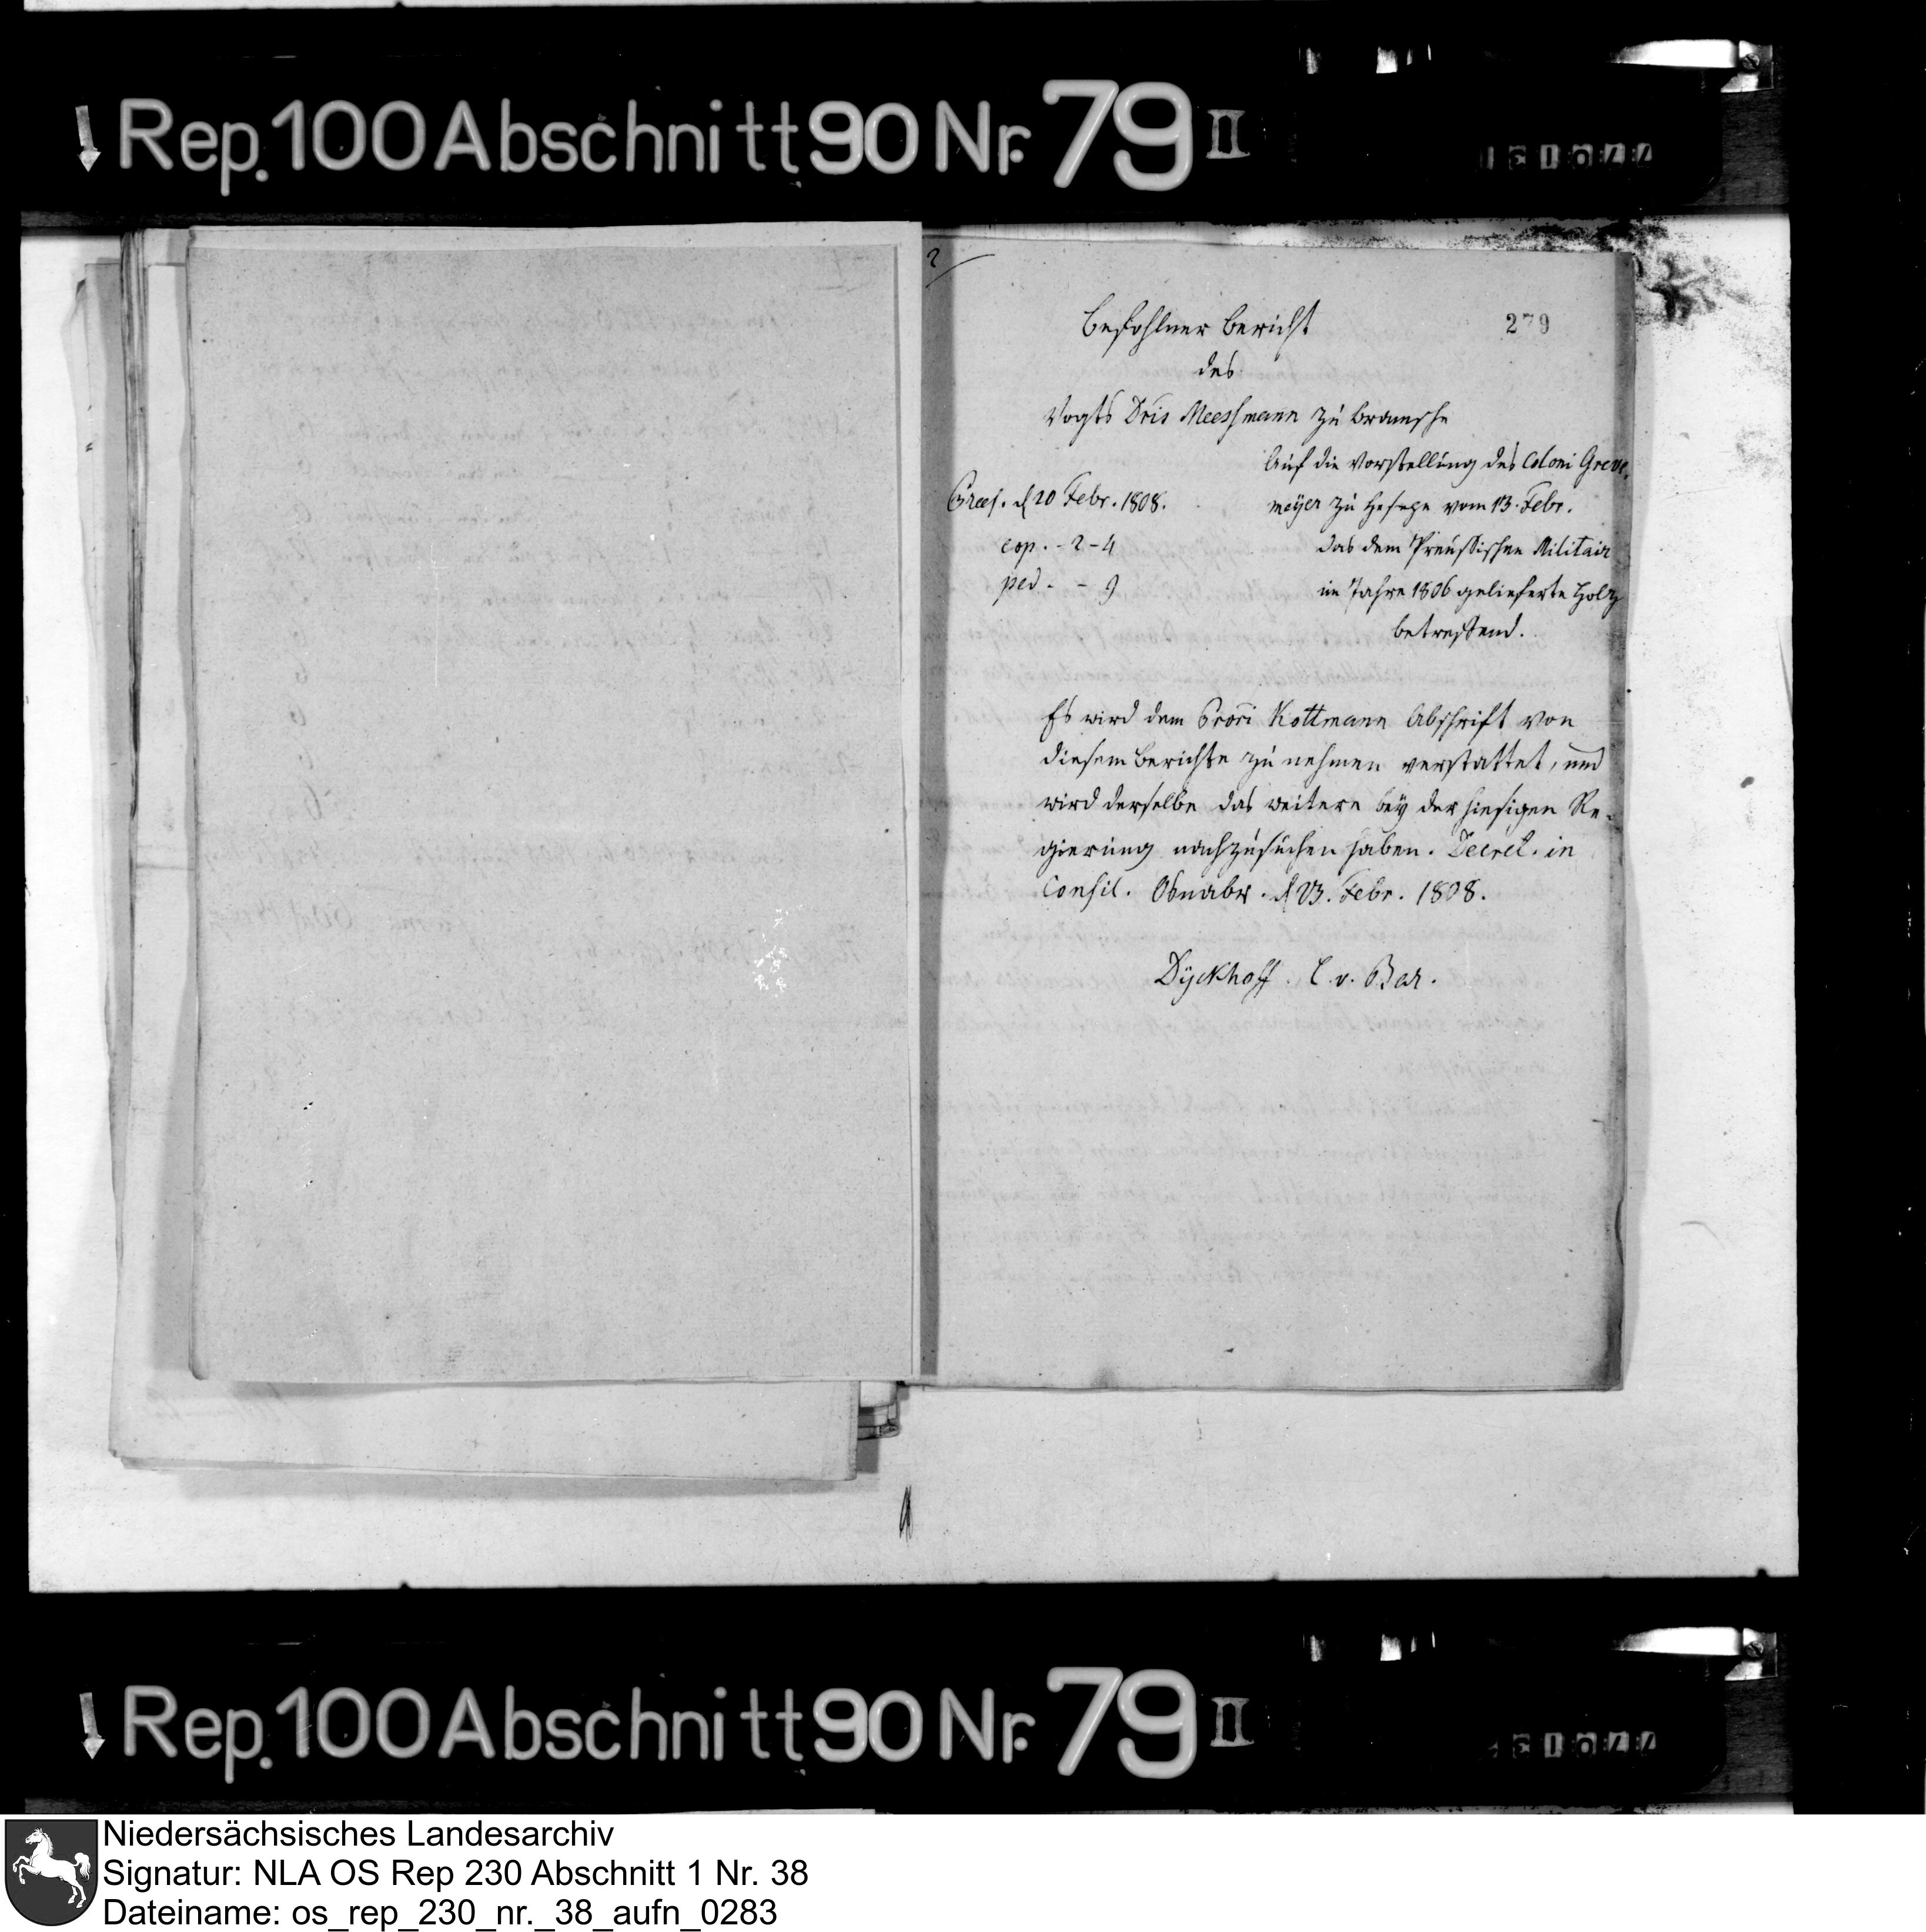 Rep. 100 Abschnitt 90 Nr. 79 II
2
279
Befohlner Bericht
des
Vogts Dris Meessmann zu Bramsche
Auf die Vorstellung des Coloni Greve-
meÿer zu Hesepe vom 13. Febr.
das dem Preussischen Militair
im Jahre 1806 gelieferte Holz
betreffend.
Praes. d 20 Febr. 1808.
cop. - 2 - 4
ped. - 9
Es wird dem Prori Kottmann Abschrift von
diesem Berichte zu nehmen verstattet, und
wird derselbe das weitere beÿ der hiesigen Re-
gierung nachzusuchen haben. Decret. in
Consil. Osnabr. d 23. Febr. 1808.
Dÿckhoff. C. v. Bar.
Rep. 100 Abschnitt 90 Nr. 79 II
Niedersächsisches Landesarchiv
Signatur: NLA OS Rep 230 Abschnitt 1 Nr. 38
Dateiname: os_rep_230_nr._38_aufn_0283